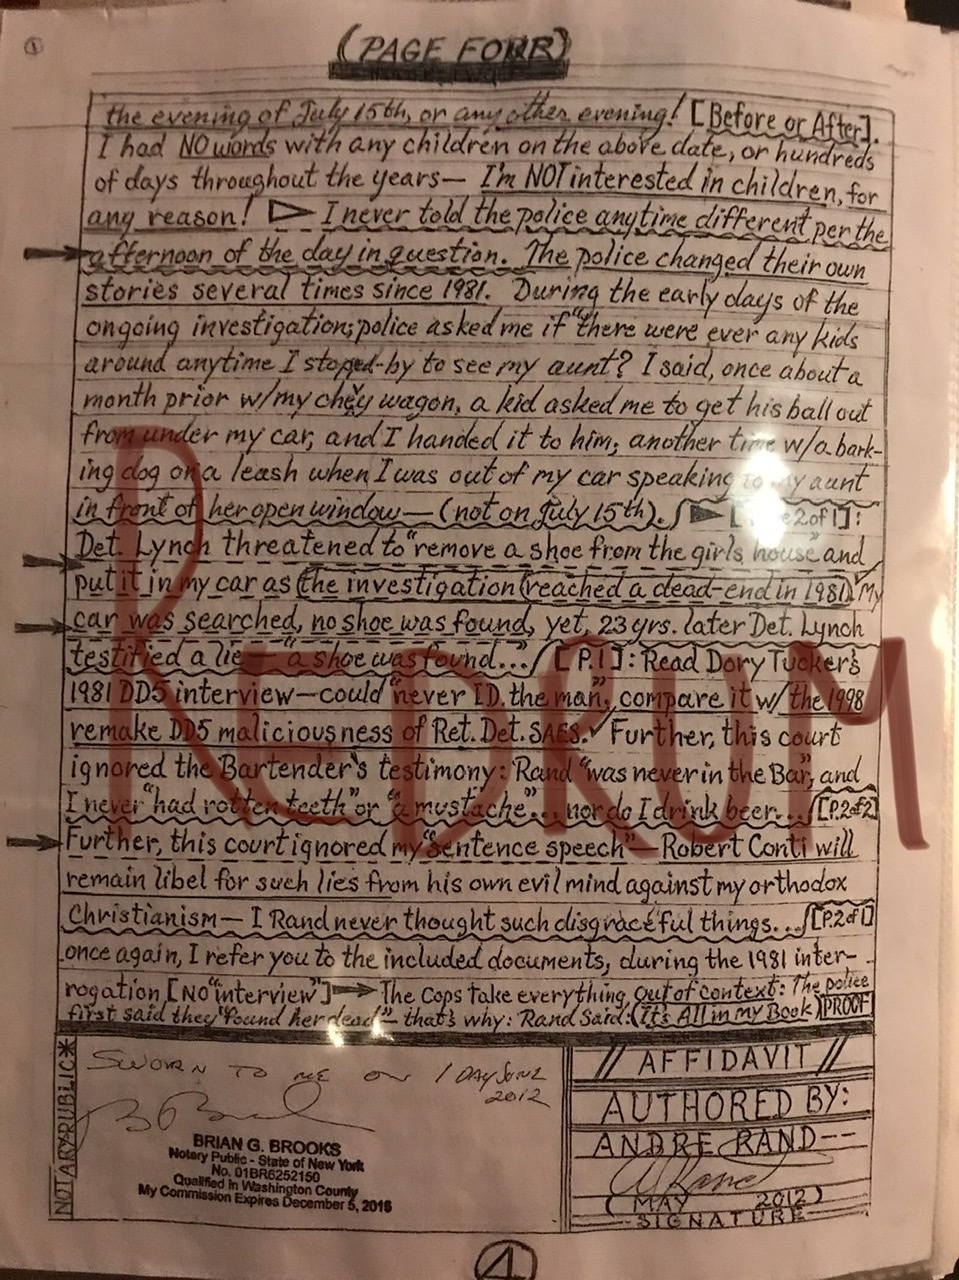 (PAGE FOUR)
the evening of July 15th, or any other evening! [Before or After].
I had NO words with any children on the above date, or hundreds
of days throughout the years— I'm NOT interested in children, for
any reason! ▷ I never told the police anytime different per the
afternoon of the day in question. The police changed their own
stories several times since 1981. During the early days of the
ongoing investigation; police asked me if "there were ever any kids
around anytime I stoped-by to see my aunt? I said, once about a
month prior w/my chevy wagon, a kid asked me to get his ball out
from under my car, and I handed it to him; another time w/a bark-
ing dog on a leash when I was out of my car speaking to my aunt
in front of her open window— (not on July 15th). ▶ [ 2 of 1]:
Det. Lynch threatened to "remove a shoe from the girls house" and
put it in my car as (the investigation (reached a dead-end in 1981) My
car was searched, no shoe was found, yet, 23 yrs. later Det. Lynch
testified a lie— "a shoe was found..." [P.1]: Read Dory Tucker's
1981 DD5 interview—could "never ID. the man", compare it w/ the 1998
remake DD5 maliciousness of Ret. Det. SAES.✓ Further, this court
ignored the Bartender's testimony: Rand "was never in the Bar", and
I never "had rotten teeth" or "a mustache"... nor do I drink beer... [P.2of2]
Further, this court ignored my "sentence speech"— Robert Conti will
remain libel for such lies from his own evil mind against my orthodox
Christianism— I Rand never thought such disgraceful things... [P.2 of 1]
once again, I refer you to the included documents, during the 1981 inter-
rogation [NO "interview"] → The Cops take everything, out of context: The police
first said they "found her dead"— that's why: Rand Said: (It's All in my Book) PROOF
NOTARY PUBLIC*
SWORN TO ME ON 1 DAY JUNE
2012
BRIAN G. BROOKS
Notary Public - State of New York
No. 01BR6252150
Qualified in Washington County
My Commission Expires December 5, 2015
// AFFIDAVIT //
AUTHORED BY:
ANDRE RAND--
(MAY 2012)
SIGNATURE
4
REDRUM